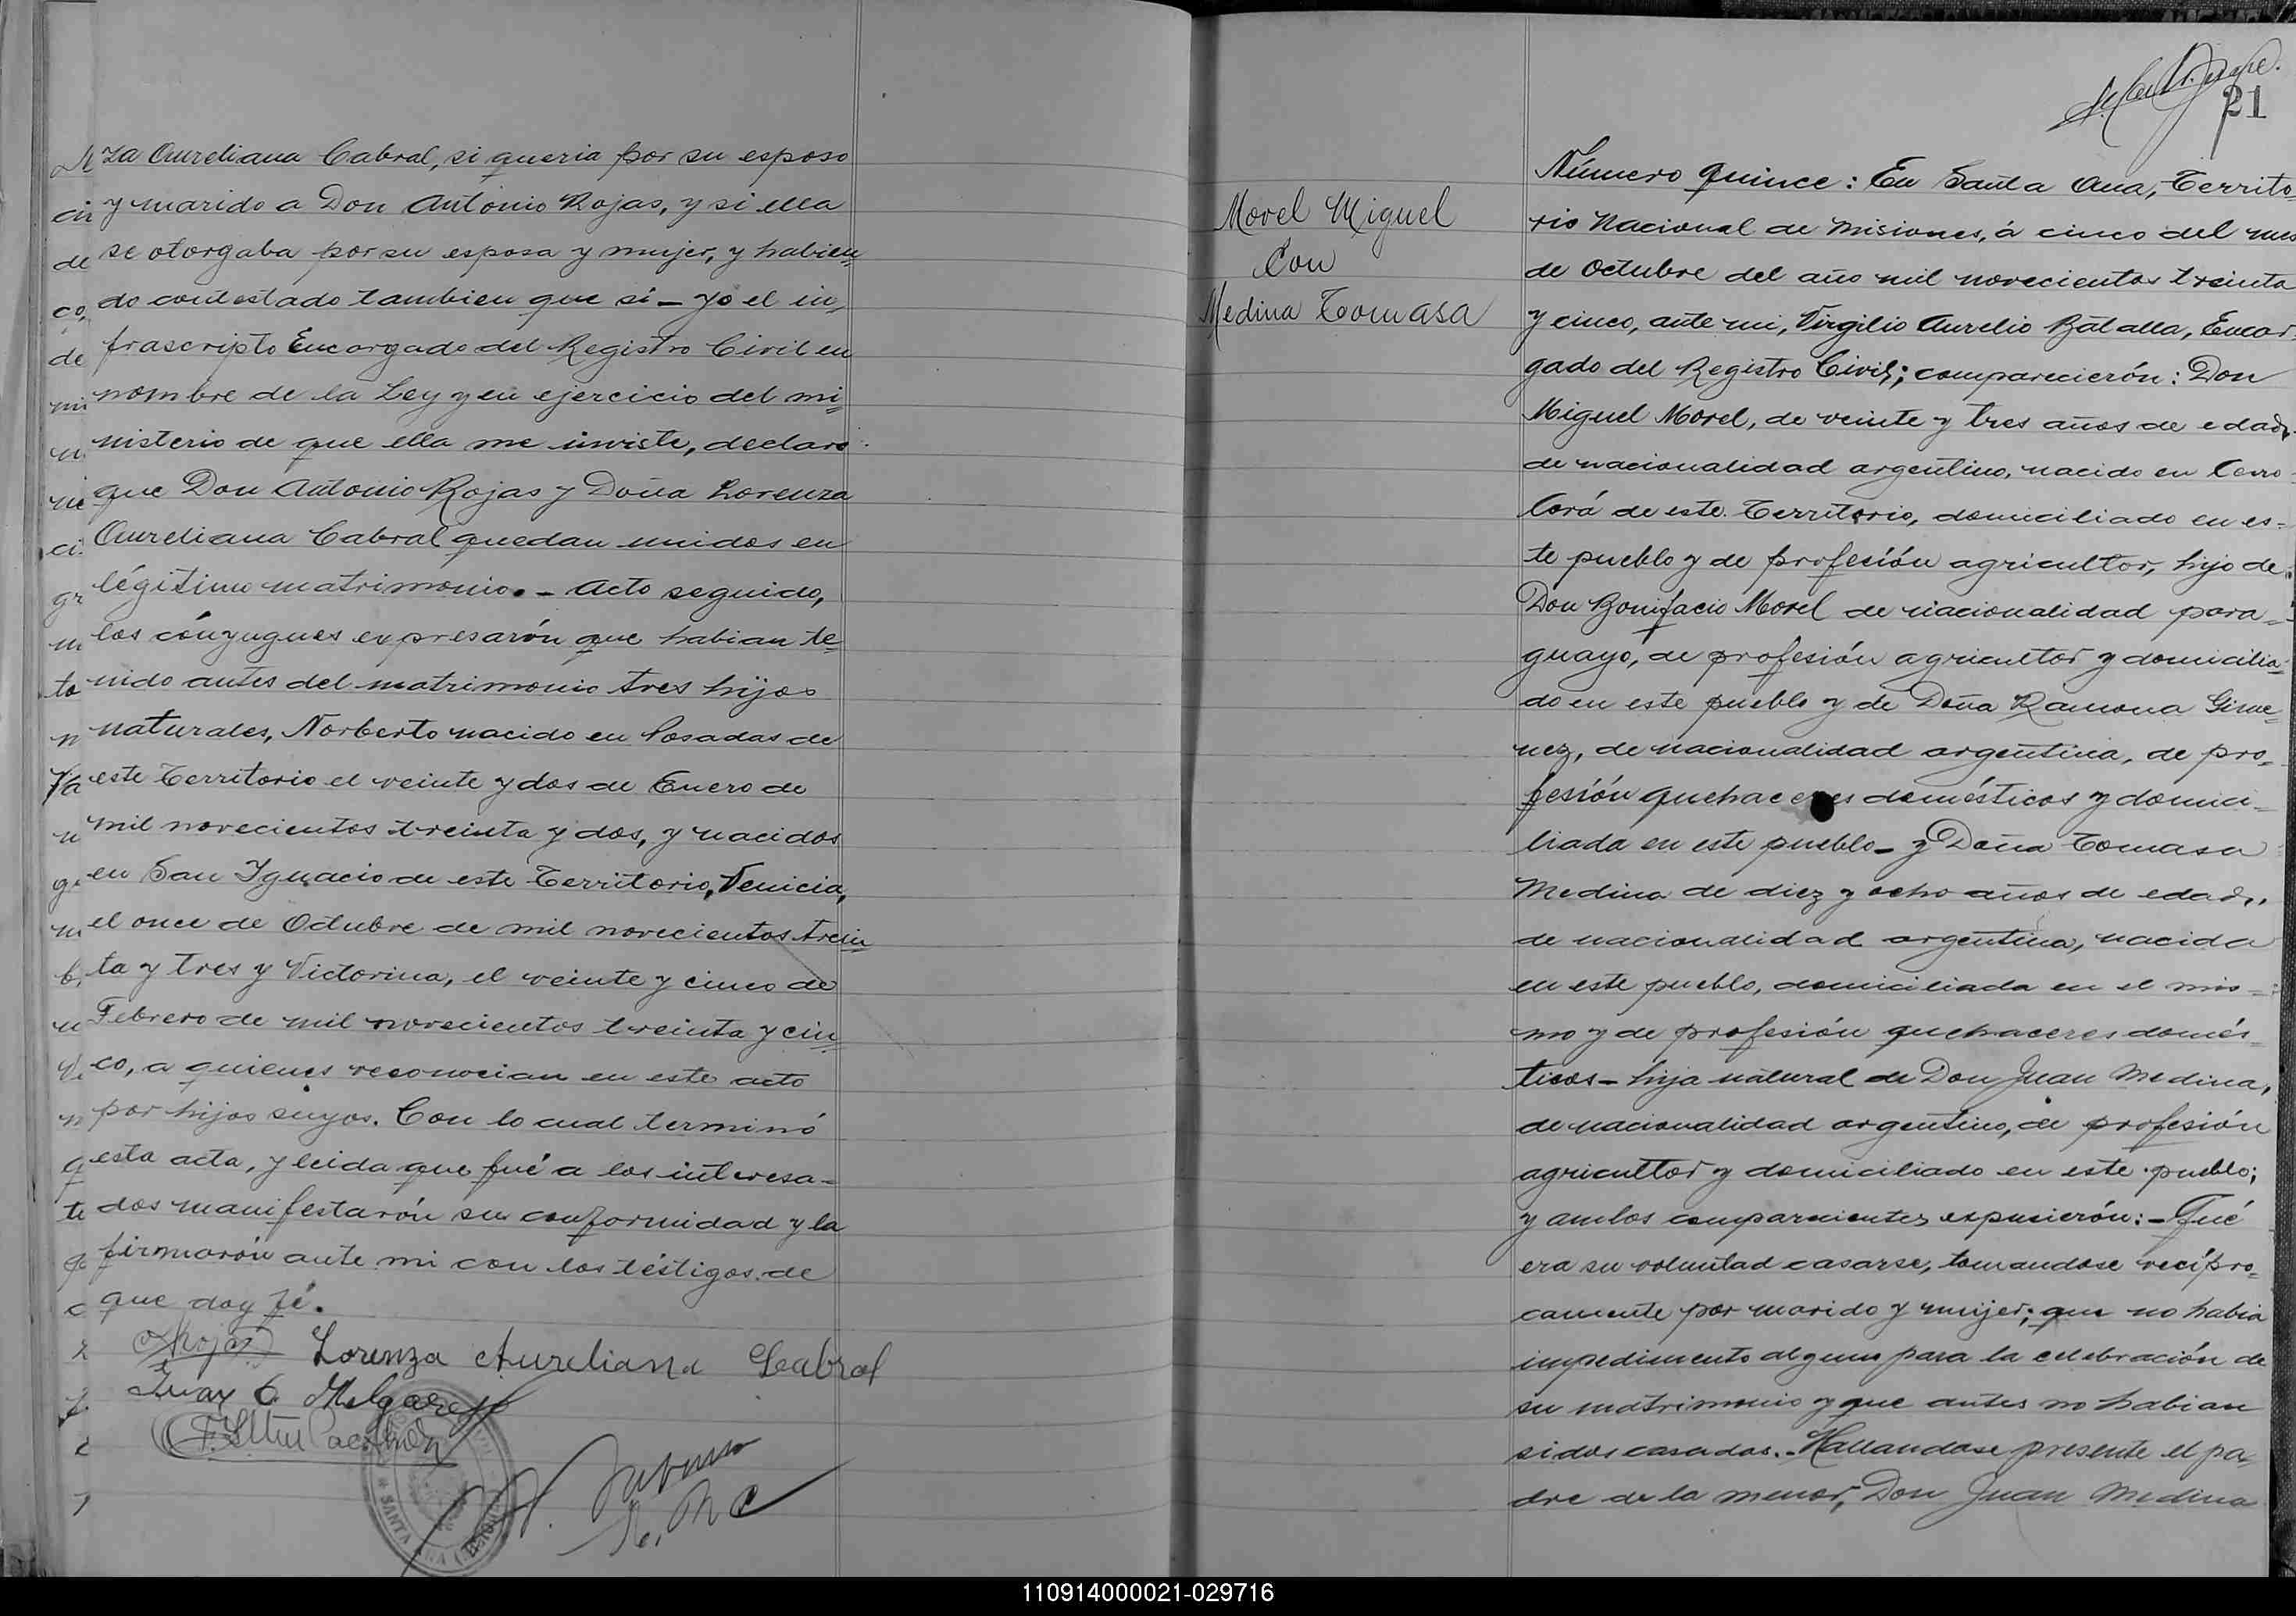 za Aureliana Cabral, si queria por su esposo
y marido a Don Antonio Rojas, y si ella
se otorgaba por su esposa y mujer, y habien
do contestado tambien que si - yo el in,
frascripto Encargado del Registro Civil en
nombre de la Ley y en ejercicio del mi
nisterio de que ella me inviste, declaro
que Don Antonio Rojas y Doña Lorenza
Aureliana Cabral quedan unidos en
légitimo matrimonio. - Acto seguido,
los cónyugues expresarón que habian te
nido antes del matrimonio tres hijos
naturales, Norberto nacido en Posadas de
este Territorio el veinte y dos de Enero de
mil novecientos treinta y dos, y nacidos
en San Ignacio de este Territorio, Venicia,
el once de Octubre de mil novecientos trein
ta y tres y Victorina, el veinte y cinco de
Febrero de mil novecientos treinta y cin
co, a quienes reconocian en este acto
por hijos suyos. Con lo cual terminó
esta acta, y leida que fué a los interesa-
dos manifestarón su conformidad y la
firmarón ante mi con los téstigos de
que doy fé.
ARojas Lorenza Aureliana Cabral
Juan C. Melgarejo
SANTA ANA
21
Morel Miguel
Con
Medina Tomasa
Número quince: En Santa Ana, Territo
rio Nacional de Misiones, á cinco del mes
de Octubre del año mil novecientos treinta
y cinco, ante mi, Virgilio Aurelio Batalla, Encar
gado del Registro Civil; comparecierón: Don
Miguel Morel, de veinte y tres años de edad,
de nacionalidad argentino, nacido en Cerro
Corá de este Territorio, domiciliado en es-
te pueblo y de profesión agricultor, hijo de:
Don Bonifacio Morel de nacionalidad para-
guayo, de profesión agricultor y domicilia
do en este pueblo y de Doña Ramona Gime
nez, de nacionalidad argentina, de pro,
fesión quehaceres domésticos y domici-
liada en este pueblo - y Doña Tomasa
Medina de diez y ocho años de edad,,
de nacionalidad argentina, nacida
en este pueblo, domiciliada en el mis-
mo y de profesión quehaceres domés
ticos - hija natural de Don Juan Medina,
de nacionalidad argentino, de profesión
agricultor y domiciliado en este pueblo;
y ambos comparecientes expusierón: - Qué
era su voluntad casarse, tomandose recipro
camente por marido y mujer; que no habia
impedimento alguno para la celebración de
su matrimonio y que antes no habian
sidos casados. - Hallandose presente el pa
dre de la menor, Don Juan Medina
110914000021-029716